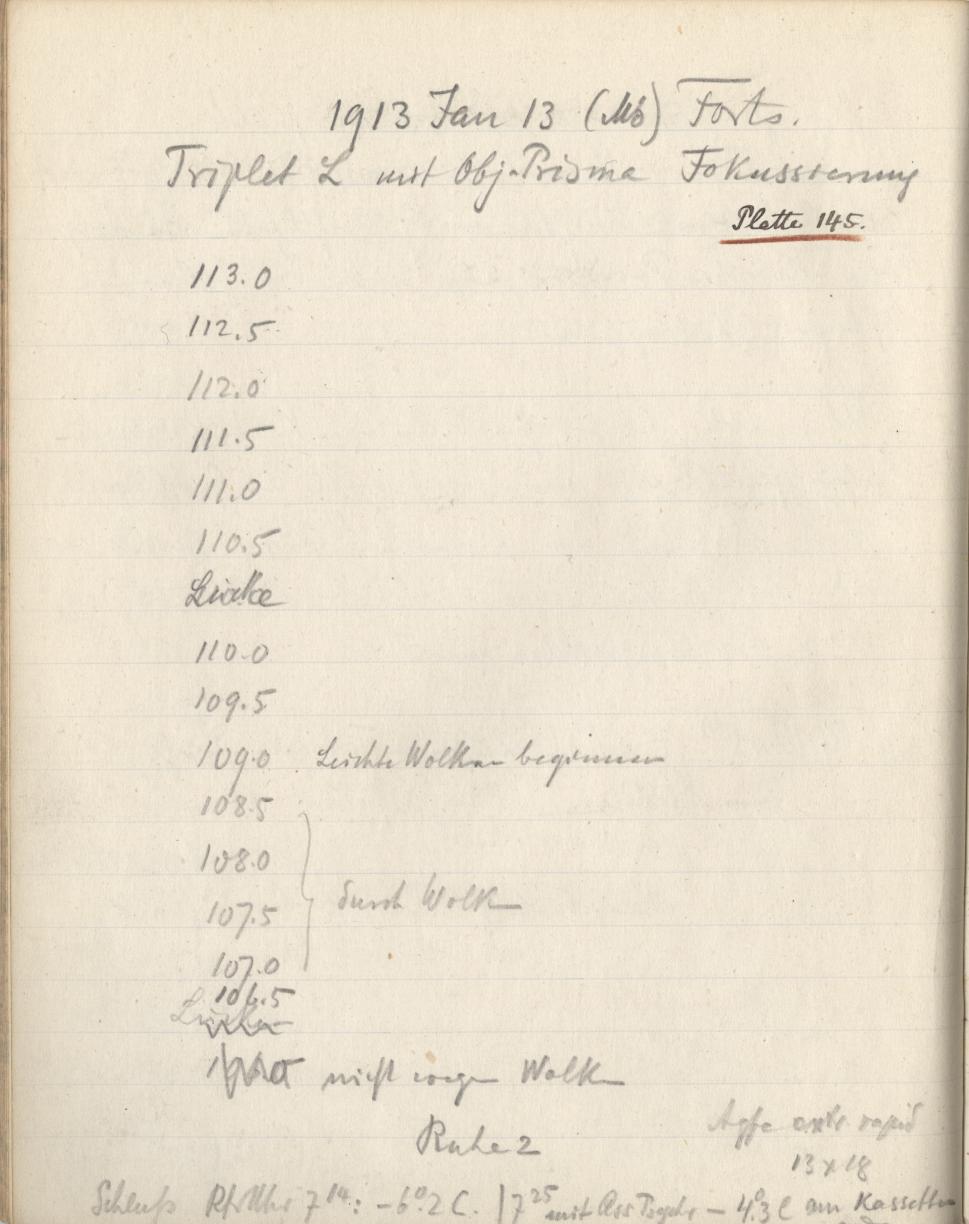 1913 Jan 13 (Mb) Forts.
Triplet L mit Obj-Prisma Fokussierung
Platte 145.
113.0
112.5
112.0
111.5
111.0
110.5
Lücke
110.0
109.5
109.0 Leichte Wolken beginnen
108.5
108.0
durch Wolk
107.5
107.0
106.5
Lücke
nicht wegen Wolk
Ruhe 2
Agfa extr. rapid
13 x 18
Schluß Rfr Uhr 7 14: -6°.2 C. | 7 25 mit Ass Psychr - 4°.3 C am Kassetten